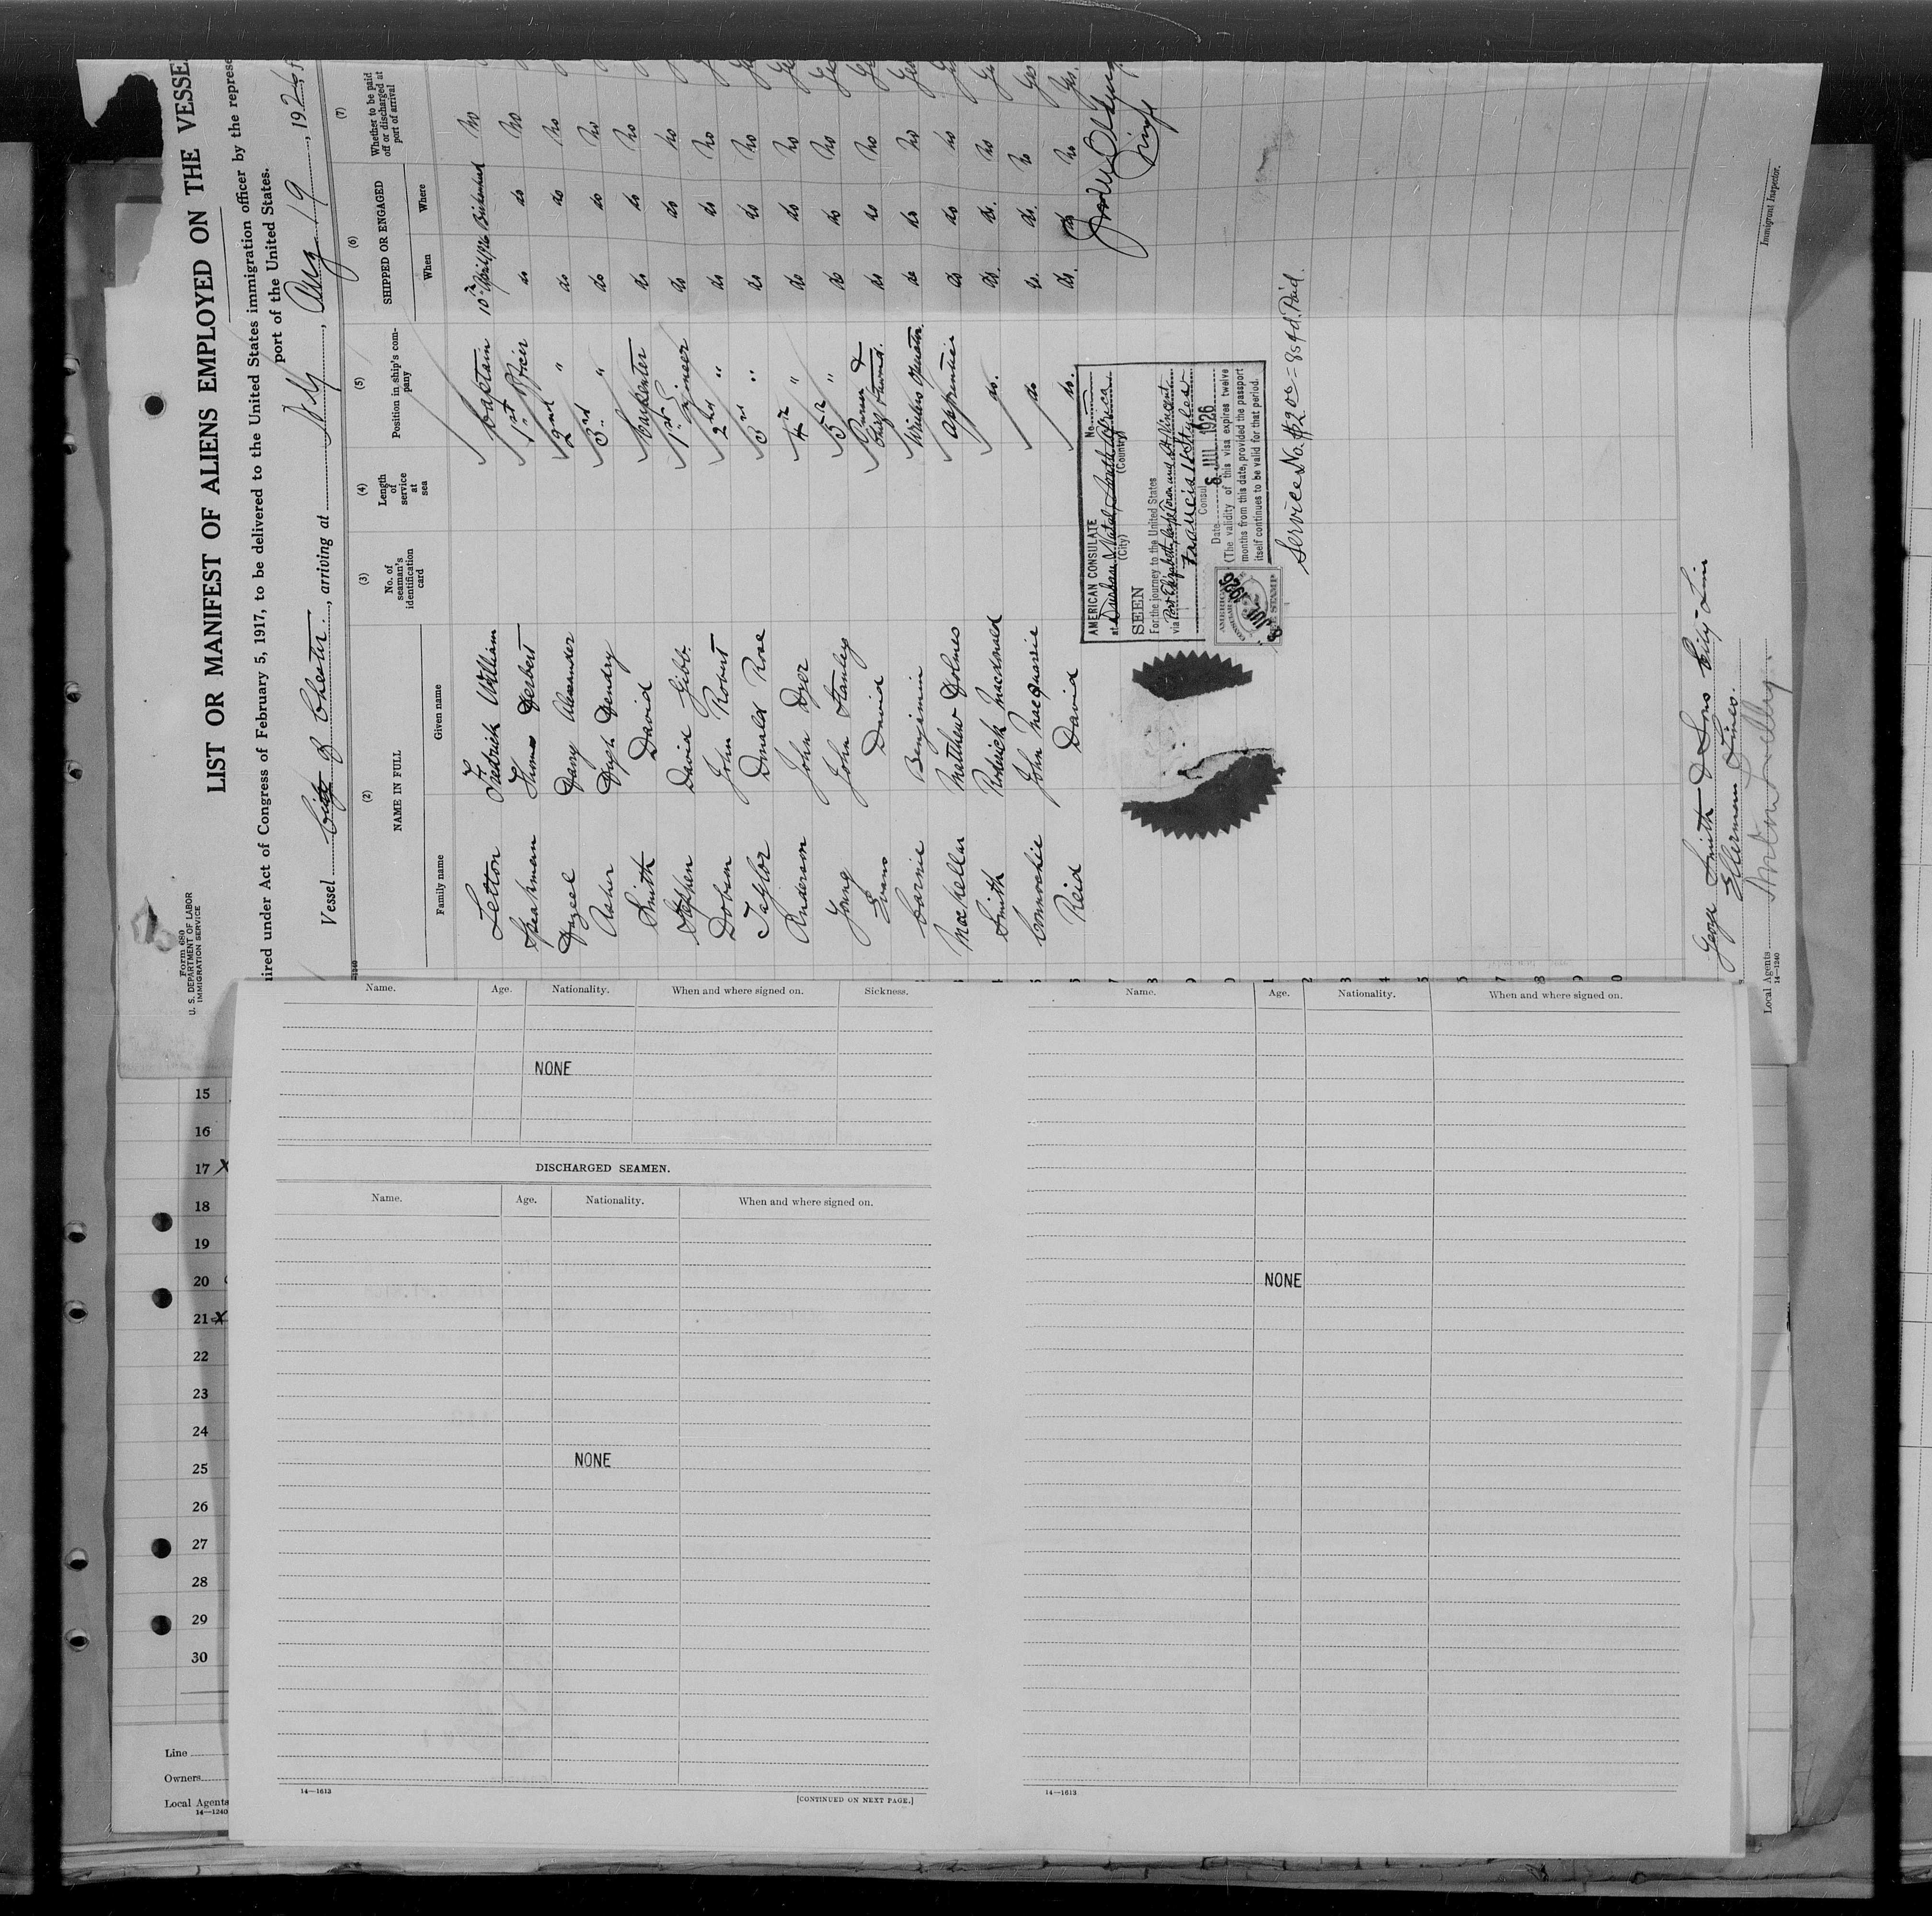 Form 680
U. S. DEPARTMENT OF LABOR
IMMIGRATION SERVICE
LIST OR MANIFEST OF ALIENS EMPLOYED ON THE VESSE
ired under Act of Congress of February 5, 1917, to be delivered to the United States immigration officer by the represe
port of the United States.
Vessel City of Chester, arriving at N.Y., Aug 19, 1926
(2) (3) (4) (5) (6) (7)
NAME IN FULL
Family name Given name
No. of seaman's identification card
Length of service at sea
Position in ship's company
SHIPPED OR ENGAGED
When Where
Whether to be paid off or discharged at port of arrival
Letton Fredrick William Captain 10th April 1926 Birkenhead No
Speakman Thomas Herbert 1st Officer do do No
Harry Alexander 2nd " do do No
Asher Hugh Hendry 3rd " do do No
Smith David Carpenter do do No
Stephen David Gibb. 1st Engineer do do No
Dobson John Robert 2nd " do do No
Taylor Donald Rose 3rd " do do No
Anderson John Dyer 4th " do do No
Young John Stanley 5th " do do No
Evans David Purser & Chief Steward. do do No
Cairnie Benjamin Wireless Operator. do do No
MacKellar Matthew Holmes Apprentice do do No
Smith Roderick Macdonald do. do. do. No
Connochie John Macquarie do do. No
Reid David do. do. do No
AMERICAN CONSULATE No.
at Durban, Natal, South Africa.
(City) (Country)
SEEN
For the journey to the United States
via Port Elizabeth, Cape Town and St. Vincent
Francis H. Styles
Consul
Date 8 JUL 1926
(The validity of this visa expires twelve
months from this date, provided the passport
itself continues to be valid for that period.
AMERICAN
FEE STAMP
Service No. $2.00 = 8s 4d. Paid.
George Smith & Sons City Line
Ellerman Lines.
Local Agents
14—1240
Immigrant Inspector.
Name. Age. Nationality. When and where signed on. Sickness.
NONE
DISCHARGED SEAMEN.
Name. Age. Nationality. When and where signed on.
NONE
14—1613
[CONTINUED ON NEXT PAGE.]
Name. Age. Nationality. When and where signed on.
NONE
14—1613
15
16
17 X
18
19
20
21 X
22
23
24
25
26
27
28
29
30
Line
Owners
Local Agents
14—1240